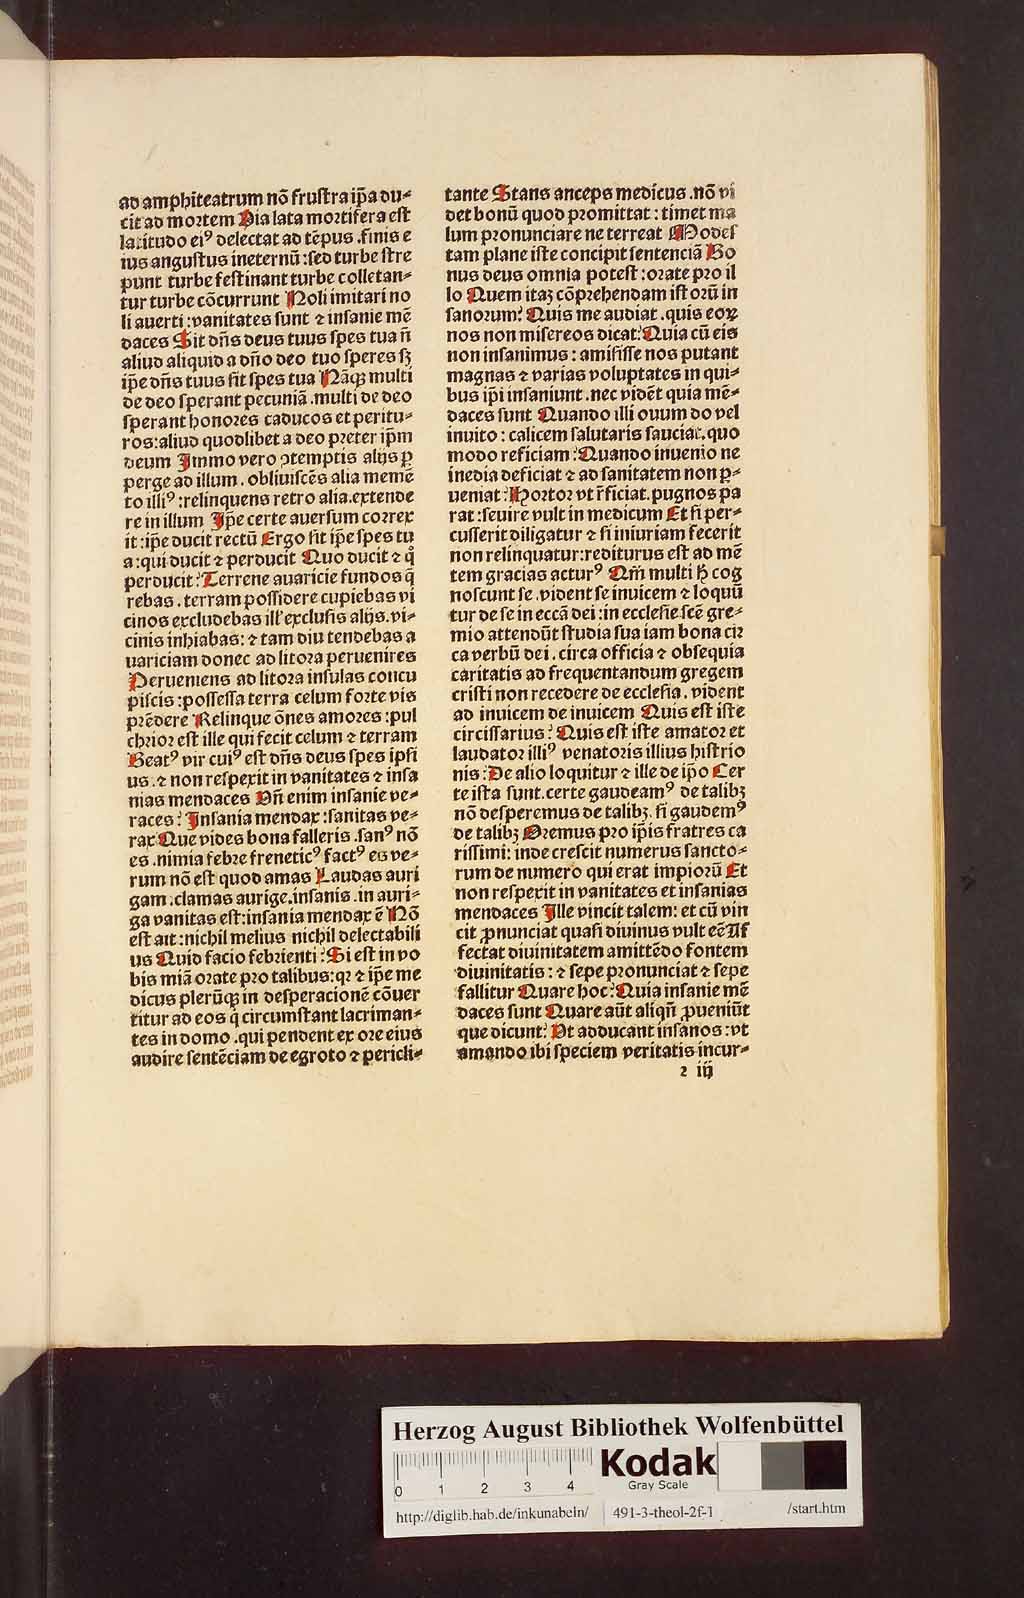 ad amphiteatrum nō frustra ip̄a du⸗
cit ad mortem Via lata mortifera est
latitudo eiꝰ delectat ad tēpus .finis e
ius angustus ineternū :sed turbe stre
punt turbe festinant turbe colletan⸗
tur turbe cōcurrunt Noli imitari no
li auerti :vanitates sunt ⁊ insanie mē
daces Sit dn̄s deus tuus spes tua n̄
aliud aliquid a dn̄o deo tuo speres sꝫ
ip̄e dn̄s tuus sit spes tua Nāqꝫ multi
de deo sperant pecuniā .multi de deo
sperant honores caducos et peritu⸗
ros:aliud quodlibet a deo preter ip̄m
deum Immo vero ꝯtemptis alijs ꝑ
perge ad illum . obliuiscēs alia memē
to illiꝰ :relinquens retro alia.extende
re in illum Ip̄e certe auersum correx
it :ip̄e ducit rectū Ergo sit ip̄e spes tu
a :qui ducit ⁊ perducit Quo ducit ⁊ qͦ
perducit? Terrene auaricie fundos q̄
rebas . terram possidere cupiebas vi
cinos excludebas ill' exclusis alijs .vi⸗
cinis inhiabas: ⁊ tam diu tendebas a
uariciam donec ad litora peruenires
Perueniens ad litora insulas concu
piscis :possessa terra celum forte vis
prēdere Relinque ōnes amores :pul
chrior est ille qui fecit celum ⁊ terram
Beatꝰ vir cuiꝰ est dn̄s deus spes ipsi
us .⁊ non respexit in vanitates ⁊ insa
nias mendaces Vn̄ enim insanie ve⸗
races? Insania mendax :sanitas ve⸗
rax Que vides bona falleris .sanꝰ nō
es .nimia febre freneticꝰ factꝰ es ve⸗
rum nō est quod amas Laudas auri
gam .clamas aurige.insanis .in auri⸗
ga vanitas est:insania mendax ē Nō
est ait :nichil melius nichil delectabili
us Quid facio febrienti? Si est in vo
bis miā orate pro talibus:qꝛ ⁊ ip̄e me
dicus plerūqꝫ in desperacionē cōuer
titur ad eos q̄ circumstant lacriman⸗
tes in domo .qui pendent ex ore eius
audire sentēciam de egroto ⁊ pericli⸗
tante Stans anceps medicus .nō vi
det bonū quod promittat : timet ma
lum pronunciare ne terreat Modes
tam plane iste concipit sentenciā Bo
nus deus omnia potest :orate pro il
lo Quem itaꝫ cōprehendam istorū in
sanorum? Quis me audiat .quis eoꝝ
nos non miseros dicat? Quia cū eis
non insanimus : amisisse nos putant
magnas ⁊ varias voluptates in qui⸗
bus ip̄i insaniunt .nec vidēt quia mē⸗
daces sunt Quando illi ouum do vel
inuito : calicem salutaris sauciat.quo
modo reficiam? Quando inuenio ne
inedia deficiat ⁊ ad sanitatem non ꝑ⸗
ueniat? Hortor vt r̄ficiat .pugnos pa
rat :seuire vult in medicum Et si per⸗
cusserit diligatur ⁊ si iniuriam fecerit
non relinquatur:rediturus est ad mē
tem gracias acturꝰ Qm̄ multi hͦ cog
noscunt se .vident se inuicem ⁊ loquū
tur de se in eccā dei :in ecclesie scē gre⸗
mio attendūt studia sua iam bona cir
ca verbū dei . circa officia ⁊ obsequia
caritatis ad frequentandum gregem
cristi non recedere de ecclesia . vident
ad inuicem de inuicem Quis est iste
circissarius? Quis est iste amator et
laudator illiꝰ venatoris illius histrio
nis? De alio loquitur ⁊ ille de ip̄o Cer
te ista sunt .certe gaudeamꝰ de talibꝫ
nō desperemus de talibꝫ. si gaudemꝰ
de talibꝫ Oremus pro ip̄is fratres ca
rissimi: inde crescit numerus sancto⸗
rum de numero qui erat impiorū Et
non respexit in vanitates et insanias
mendaces Ille vincit talem: et cū vin
cit ꝓnunciat quasi diuinus vult eē Af
fectat diuinitatem amittēdo fontem
diuinitatis : ⁊ sepe pronunciat ⁊ sepe
fallitur Quare hoc? Quia insanie mē
daces sunt Quare aūt aliqn̄ ꝓueniūt
que dicunt? Vt adducant insanos :vt
amando ibi speciem veritatis incur⸗
2 iij
Herzog August Bibliothek Wolfenbüttel
0 1 2 3 4
Kodak
Gray Scale
http://diglib.hab.de/inkunabeln/ 491-3-theol-2f-1 /start.htm